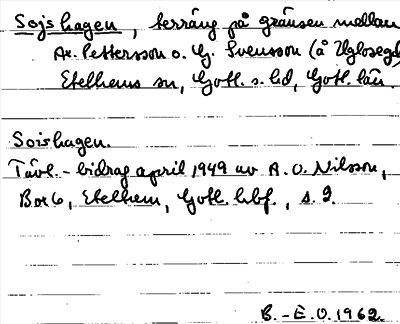 Sojshagen, terräng på gränsen mellan
Ax. Pettersson o. G. Svensson (å Uglosegd
Etelhems sn, Gotl. s. hd, Gotl. län.
Soishagen.
Tävl.-bidrag april 1949 av A. O. Nilsson,
Box 6, Etelhem, Gotl. hbf., s. 9.
B.-E. O. 1962.